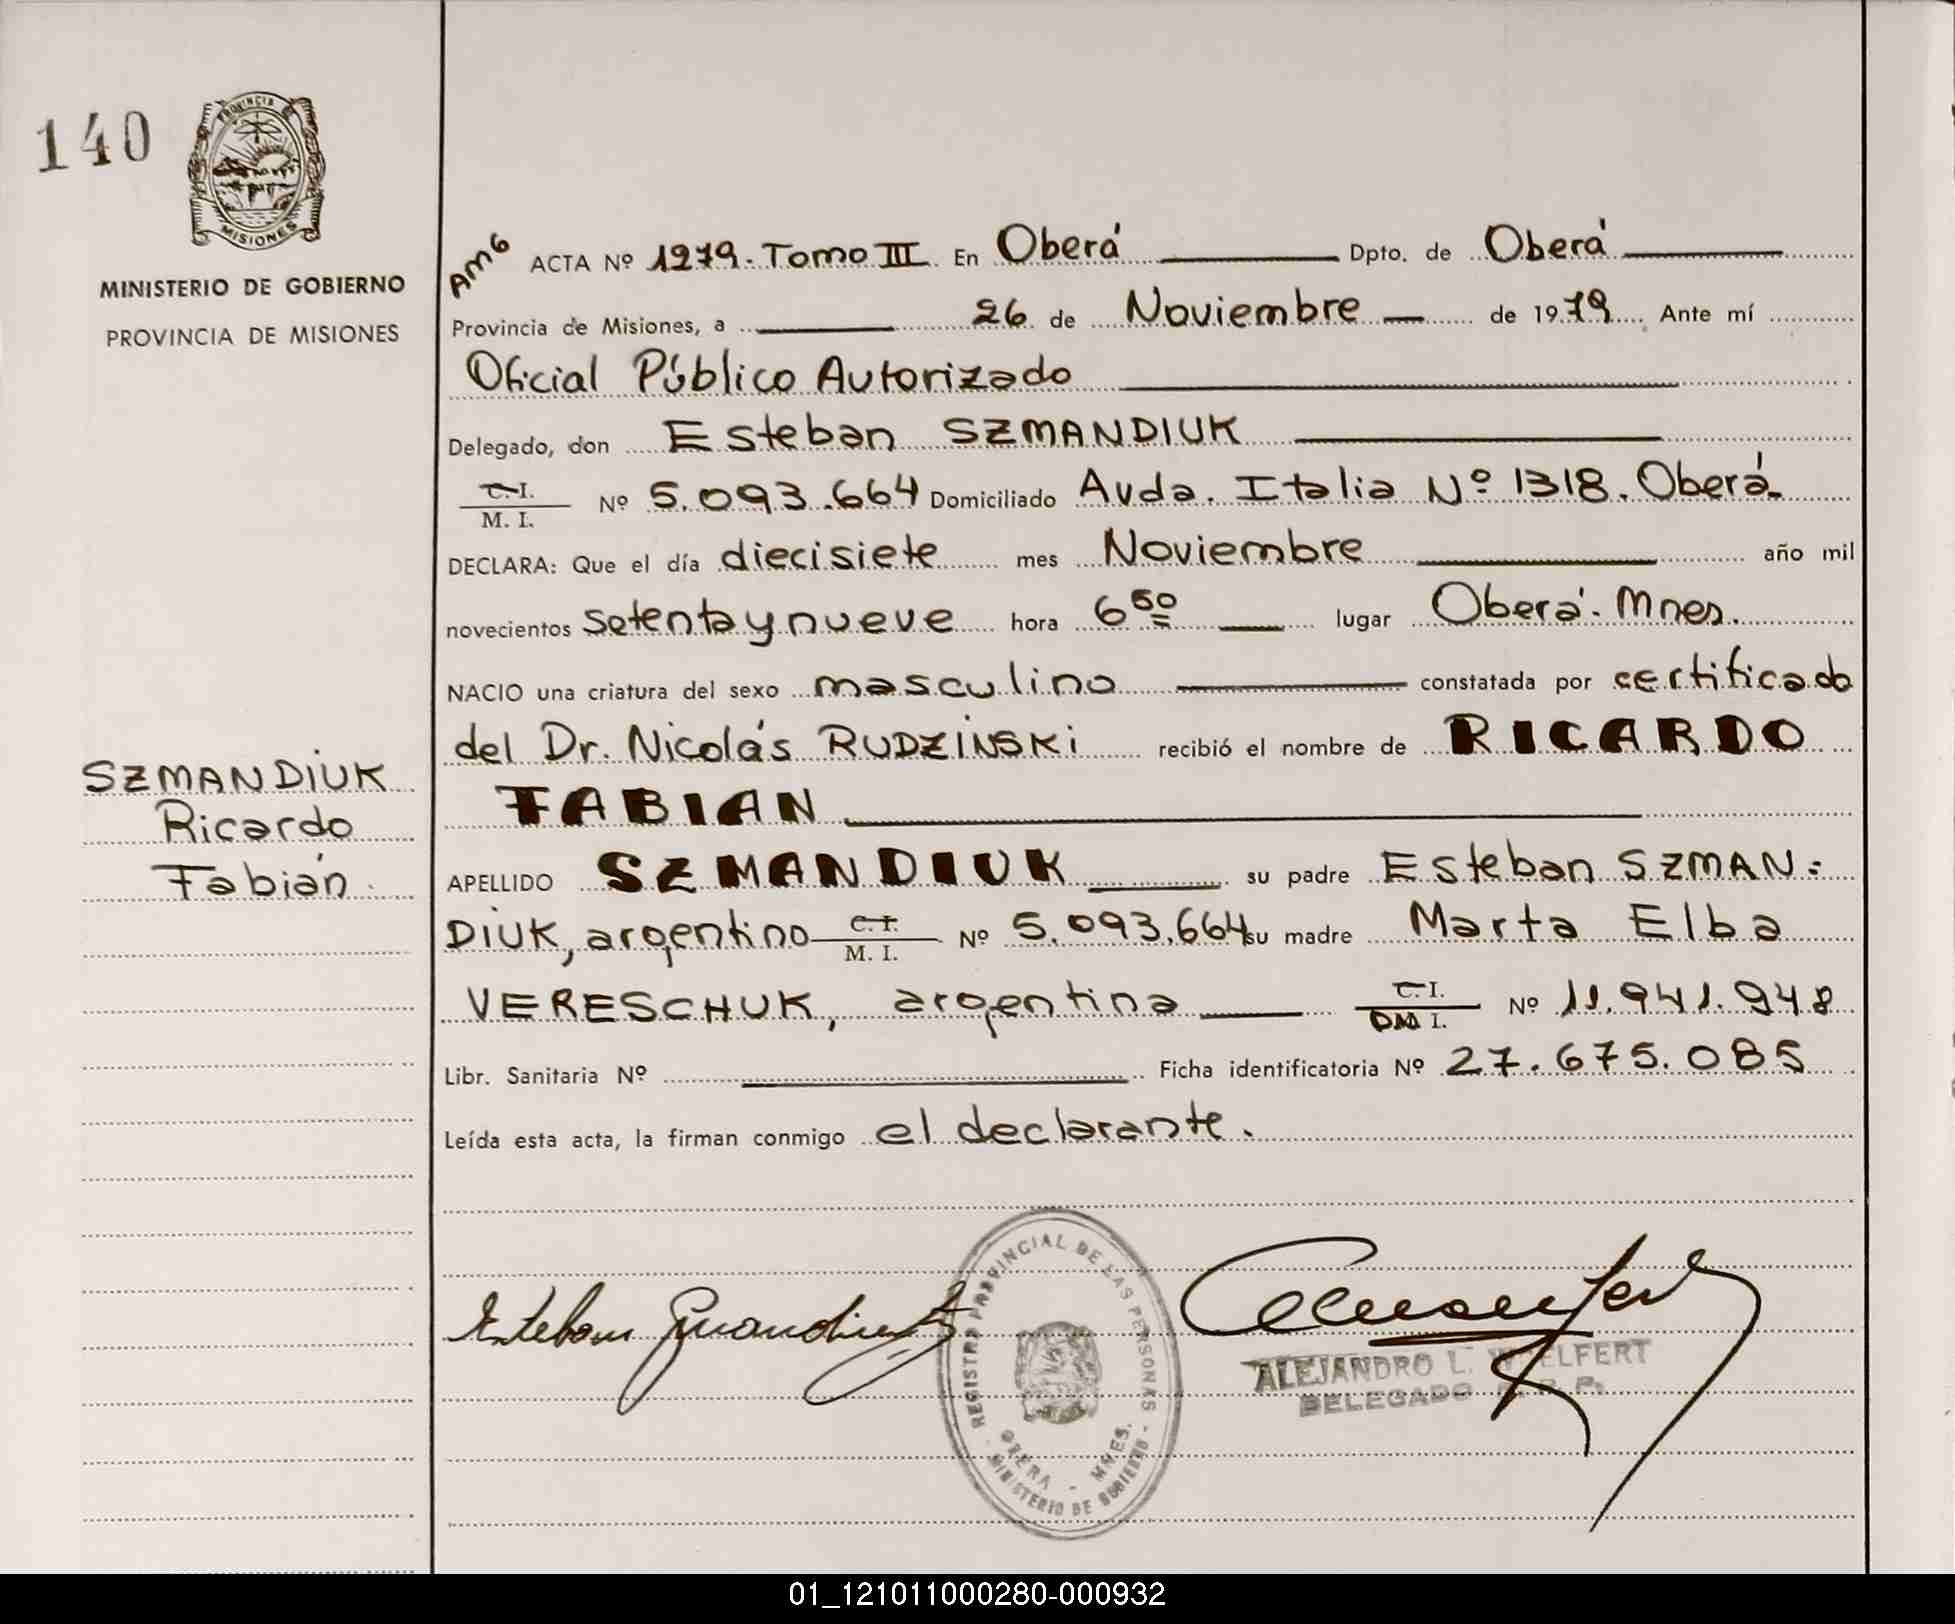 140
PROVINCIA DE
MISIONES
MINISTERIO DE GOBIERNO
PROVINCIA DE MISIONES
SZMANDIUK
Ricardo
Fabián.
AM6
ACTA Nº 1279. Tomo III En Oberá Dpto. de Oberá
Provincia de Misiones, a 26 de Noviembre de 1979 Ante mí
Oficial Público Autorizado
Delegado, don Esteban SZMANDIUK
C.I. / M. I. Nº 5.093.664 Domiciliado Avda. Italia Nº 1318. Oberá
DECLARA: Que el día diecisiete mes Noviembre año mil
novecientos setenta y nueve hora 6 50 lugar Oberá. Mnes.
NACIO una criatura del sexo masculino constatada por certificado
del Dr. Nicolás RUDZINSKi recibió el nombre de RICARDO
FABIAN
APELLIDO SZMANDIUK su padre Esteban SZMAN=
DIUK, argentino C.I. / M. I. Nº 5.093.664 su madre Marta Elba
VERESCHUK, argentina C.I. / DNI I. Nº 11.941.948
Libr. Sanitaria Nº Ficha identificatoria Nº 27.675.085
Leída esta acta, la firman conmigo el declarante.
Esteban Szmandiuk
REGISTRO PROVINCIAL DE LAS PERSONAS
OBERA - MNES.
MINISTERIO DE GOBIERNO
ALEJANDRO L. WOELFERT
DELEGADO R. P. P.
01_121011000280-000932